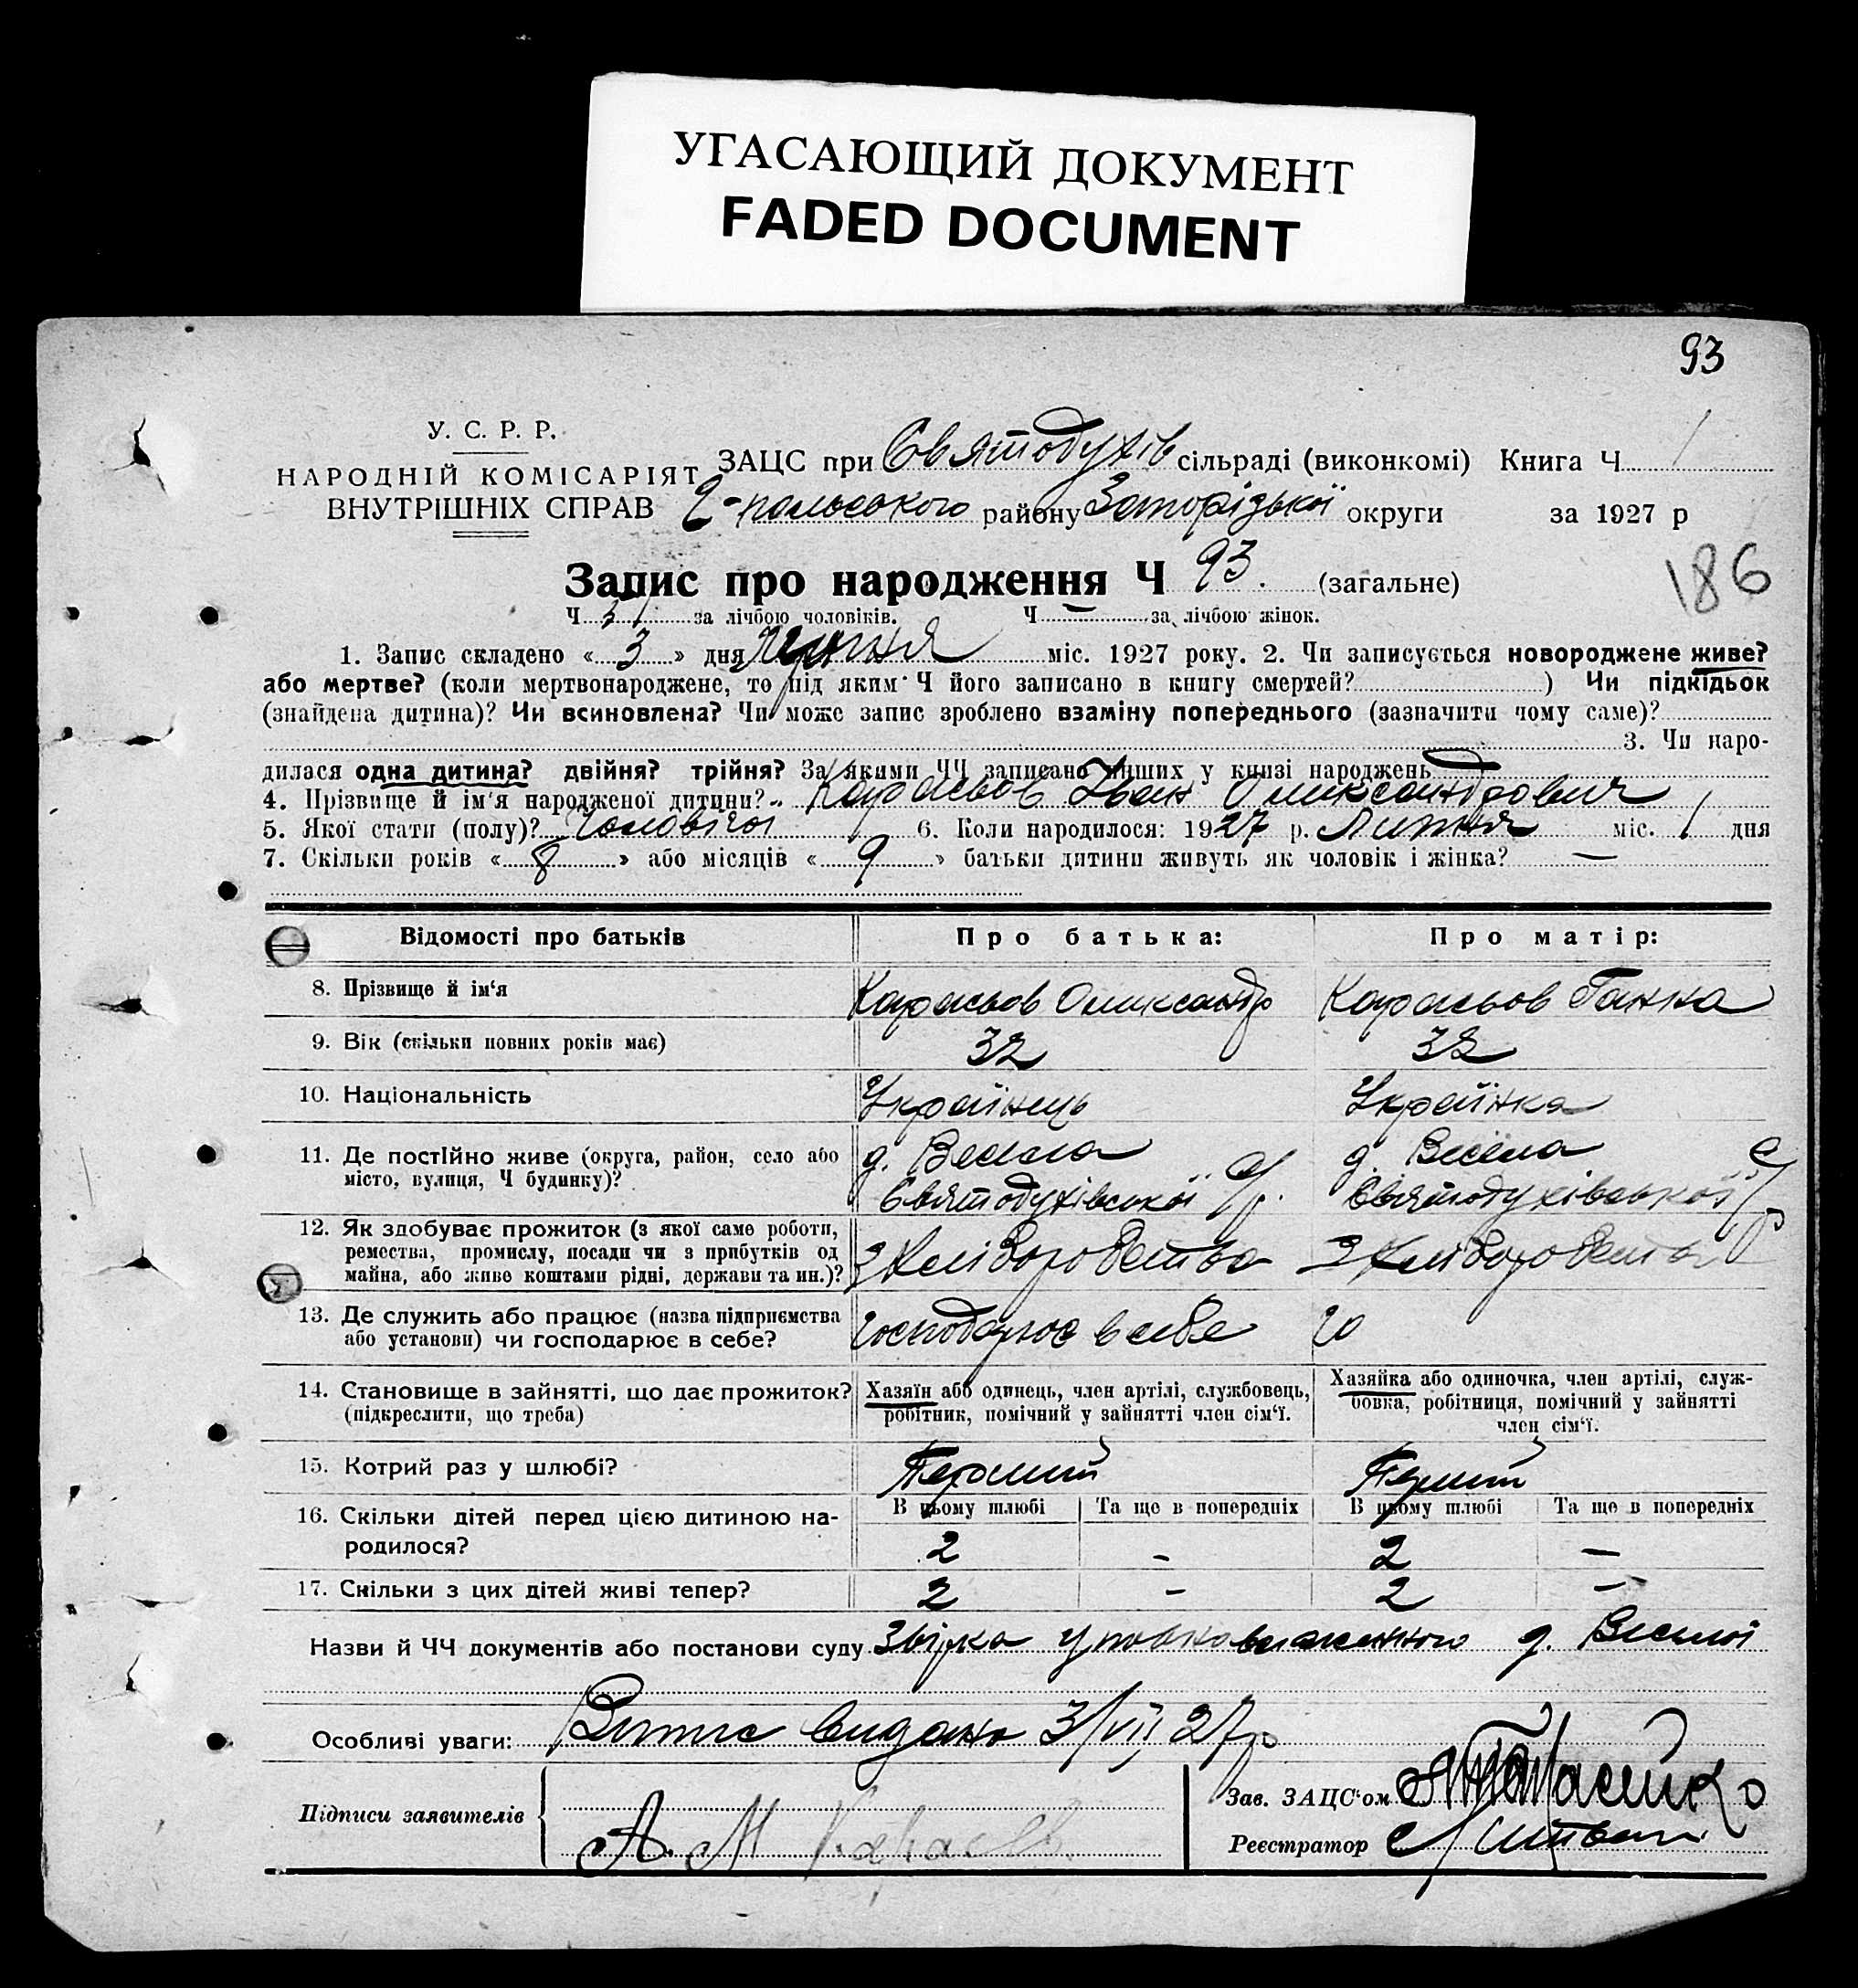 УГАСАЮЩИЙ ДОКУМЕНТ
FADED DOCUMENT
93
У. С. Р. Р.
НАРОДНІЙ КОМІСАРІЯТ
ВНУТРІШНІХ СПРАВ
ЗАЦС при Святодухів сільраді (виконкомі) Книга Ч 1
2-польського району Запорізької округи за 1927 р
186
Запис про народження Ч 93. (загальне)
Ч за лічбою чоловіків. Ч — за лічбою жінок.
1. Запис складено « 3 » дня міс. 1927 року. 2. Чи записується новороджене живе?
або мертве? (коли мертвонароджене, то під яким Ч його записано в книгу смертей? ) Чи підкідьок
(знайдена дитина)? Чи всиновлена? Чи може запис зроблено взаміну попереднього (зазначити чому саме)?
3. Чи наро-
дилася одна дитина? двійня? трійня? За якими ЧЧ записано инших у книзі народжень —
4. Прізвище й ім'я народженої дитини? Карасьов Іван Оликсандрович
5. Якої стати (полу)? Чоловічої 6. Коли народилося: 1927 р. Липня міс. 1 дня
7. Скільки років « 8 » або місяців « 9 » батьки дитини живуть як чоловік і жінка? —
Відомості про батьків Про батька: Про матір:
8. Прізвище й ім'я Карасьов Оликсандр Карасьов Ганна
9. Вік (скільки повних років має) 32 32
10. Національність Українець Українка
11. Де постійно живе (округа, район, село або д. Весела д. Весела
місто, вулиця, Ч будинку)? Святодухівської с/р. Святодухівської с/р
12. Як здобуває прожиток (з якої саме роботи,
ремества, промислу, посади чи з прибутків од З Хліборобства З Хліборобства
майна, або живе коштами рідні, держави та ин.)?
13. Де служить або працює (назва підприємства
або установи) чи господарює в себе? господарює в себе
14. Становище в зайнятті, що дає прожиток? Хазяїн або одинець, член артілі, службовець, Хазяйка або одиночка, член артілі, служ-
(підкреслити, що треба) робітник, помічний у зайнятті член сім'ї. бовка, робітниця, помічний у зайнятті
член сім'ї.
15. Котрий раз у шлюбі? Перший Перший
16. Скільки дітей перед цією дитиною на- В цьому шлюбі Та ще в попередніх В цьому шлюбі Та ще в попередніх
родилося? 2 - 2 —
17. Скільки з цих дітей живі тепер? 2 - 2 —
Назви й ЧЧ документів або постанови суду Звірка уповноваженного д. Веселої
Особливі уваги: Випис видано 3/VII 27р
Підписи заявителів А. М Карасев
Зав. ЗАЦС'ом
Реєстратор